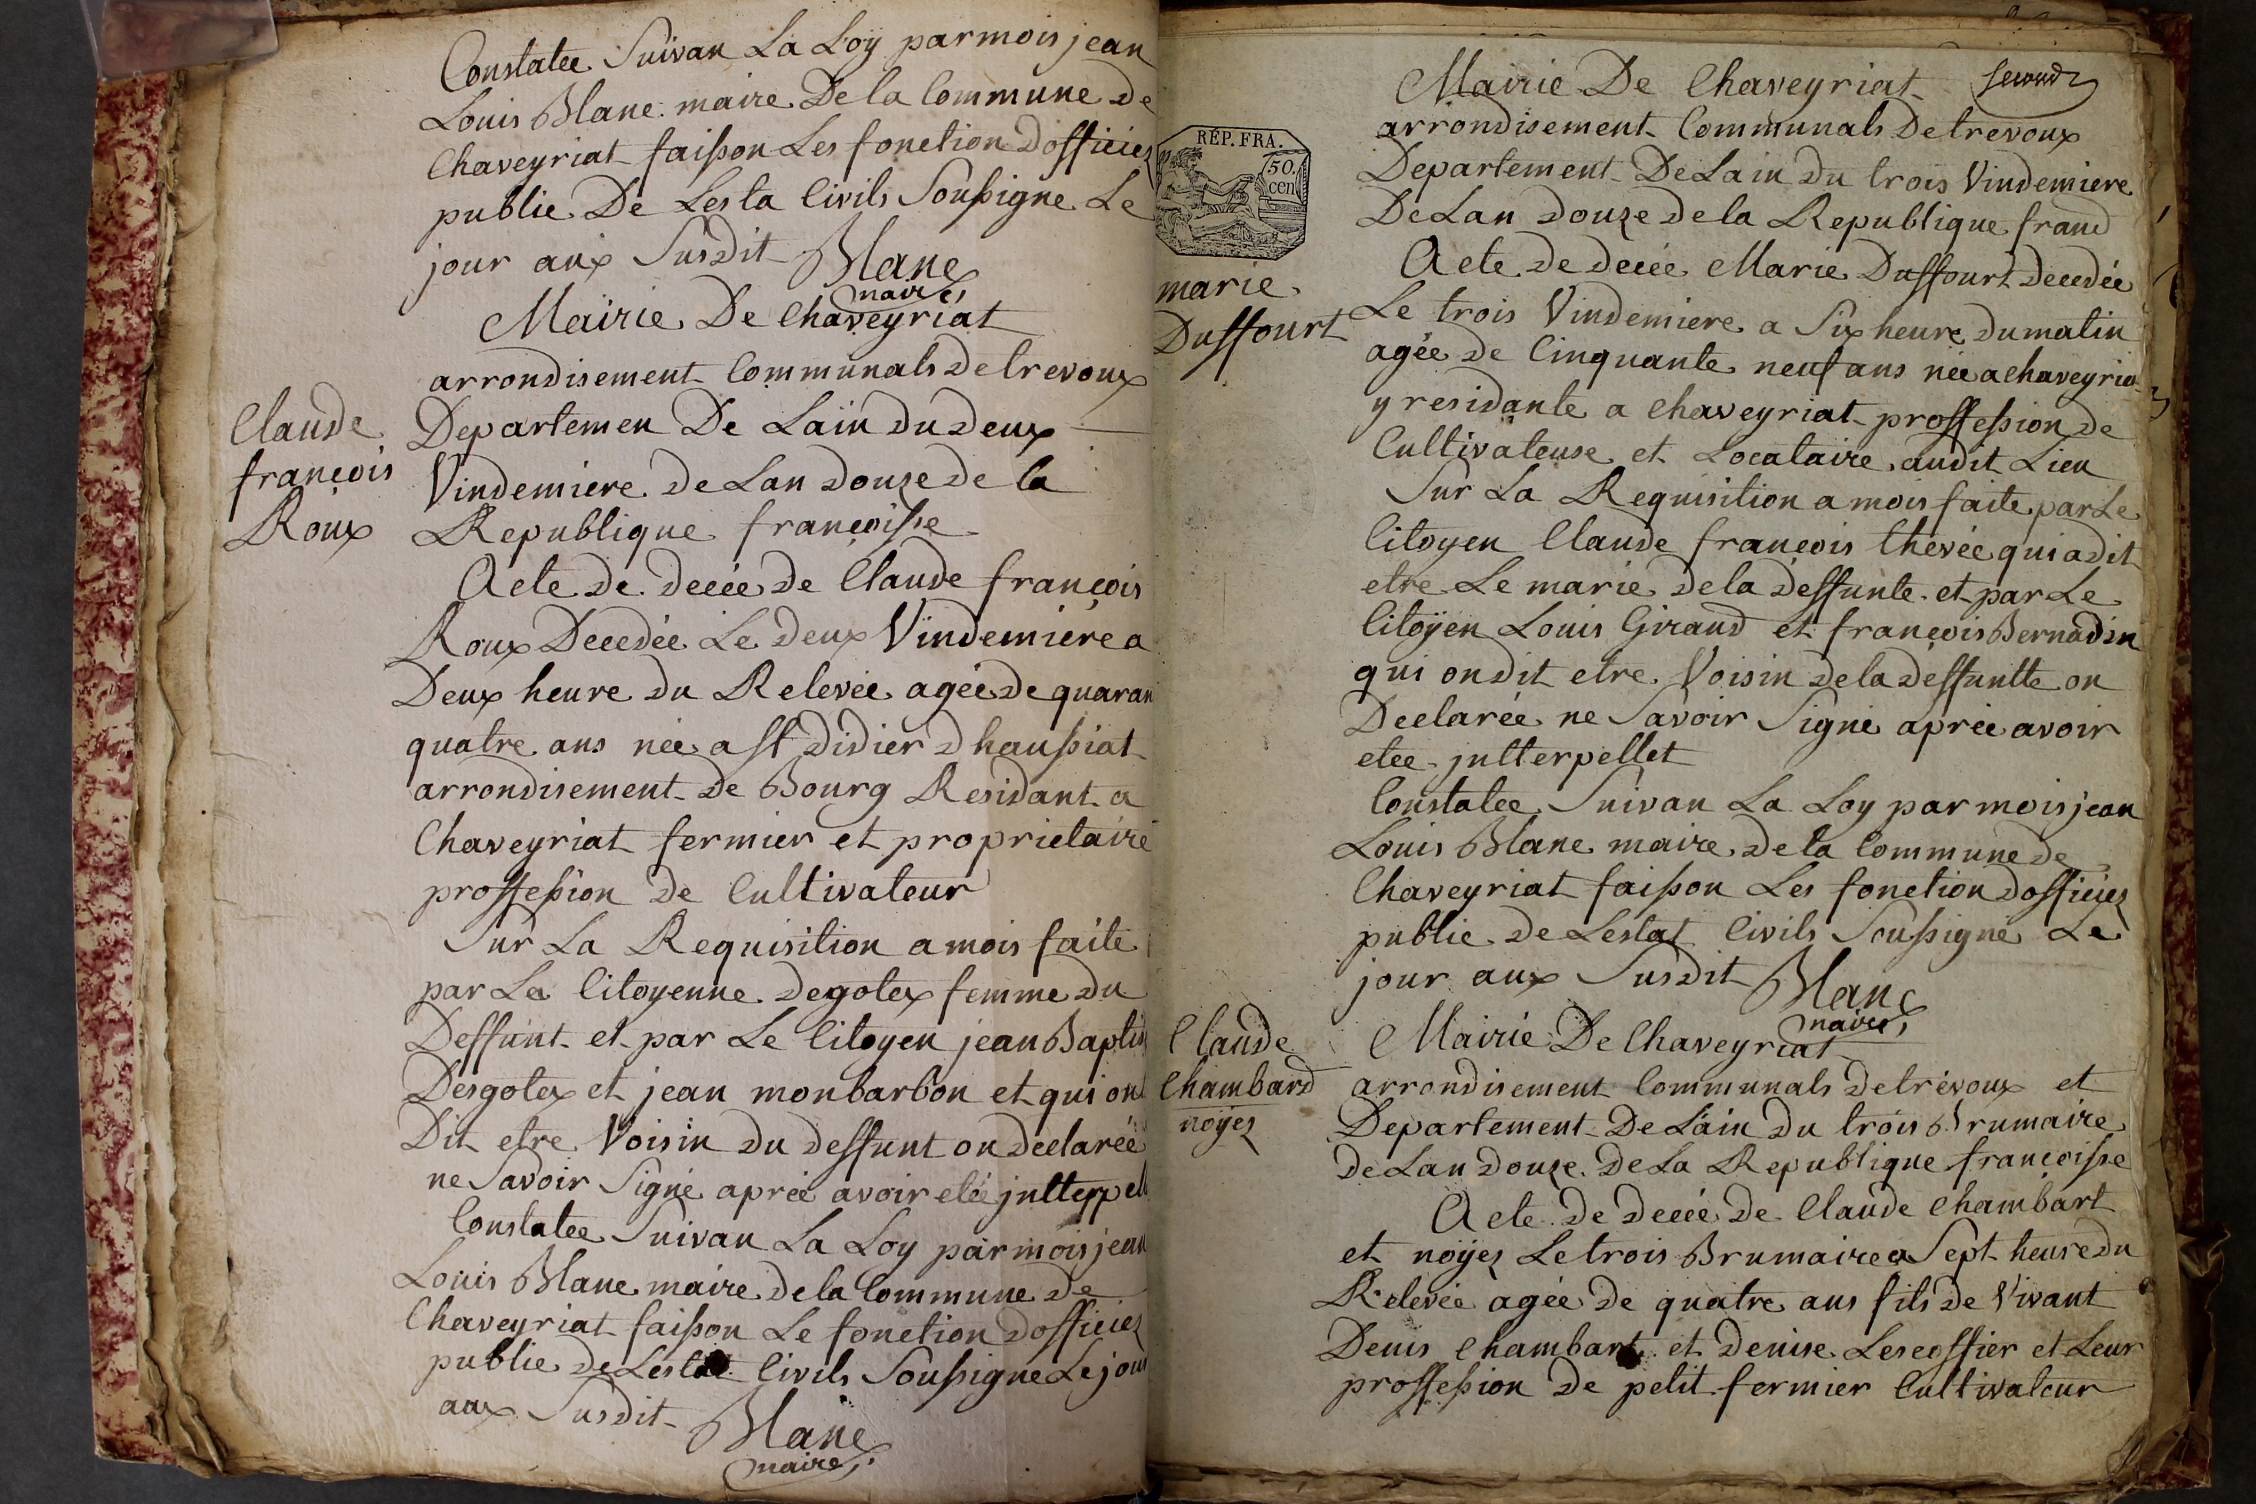 Constatee Suivan La Loÿ par mois jean
Louis Blanc maire De la Commune de
Chaveyriat faisson Les fonction Dofficiez
public De Lesta Civils Soussigne Le
jour aux Susdit Blanc
maire
Mairie De Chaveyriat
arrondisement Communals de trevoux
Claude
françois
Roux
Departemen De Lain du deux
Vindemiere de Lan douze de la
Republique françoisse
Acte de deceé de Claude françois
Roux Decedée Le deux Vindemiere a
Deux heure du Relevée agée de quaran
quatre ans neé a St didier dhaussiat
arrondisement de Bourg Residant a
Chaveyriat fermier et proprietaire
proffession de Cultivateur
Sur La Requisition a mois faite
par La Citoyenne degotex femme du
Deffunt et par Le Citoyen jean Baptis
Desgotex et jean monbarbon et qui ont
Dit etre Voisin du deffunt on declareé
ne Savoir Signé apreé avoir eteé jntterpell
Constatee Suivan La Loy par mois jean
Louis Blanc maire de la Commune de
Chaveyriat faisson Le fonction dofficiez
public de Lestat Civils Soussigne Le jour
aux Susdit Blanc
maire
Mairie De Chaveyriat Second
arrondisement Communals De trevoux
Departement De Lain du trois Vindemiere
De Lan douze de la Republique franc
RÉP. FRA.
50.
cen
marie
Duffourt
Acte de deceé Marie Duffourt decedée
Le trois Vindemiere a Six heure du matin
ageé de Cinquante neuf ans neé a chaveyria
y residante a chaveyriat proffession de
Cultivateuse et Locataire audit Lieu
Sur La Requisition a mois faite par Le
Citoyen Claude françois Chevée qui a dit
etre Le marie de la deffunte et par Le
Citoÿen Louis Giraud et françois Bernadin
qui on dit etre Voisin de la deffuntte on
Declareé ne Savoir Signé apreé avoir
etee jntterpellet
Constatee Suivan La Loy par mois jean
Louis Blanc maire de la Commune de
Chaveyriat faisson Les fonction dofficiez
public de Lestat Civils Soussigné Le
jour aux Susdit Blanc
maire
Claude
Chambard
noÿez
Mairie De Chaveyriat
arrondisement Communals de trévoux et
Departement De Lain du trois Brumaire
de Lan douze De La Republique françoisse
Acte de deceé de Claude Chambart
et noÿez Le trois Brumaire a Sept heure du
Relevée agée de quatre ans fils de Vivant
Denis Chambart et Denise Lescoffier et Leur
proffession de petit fermier Cultivateur